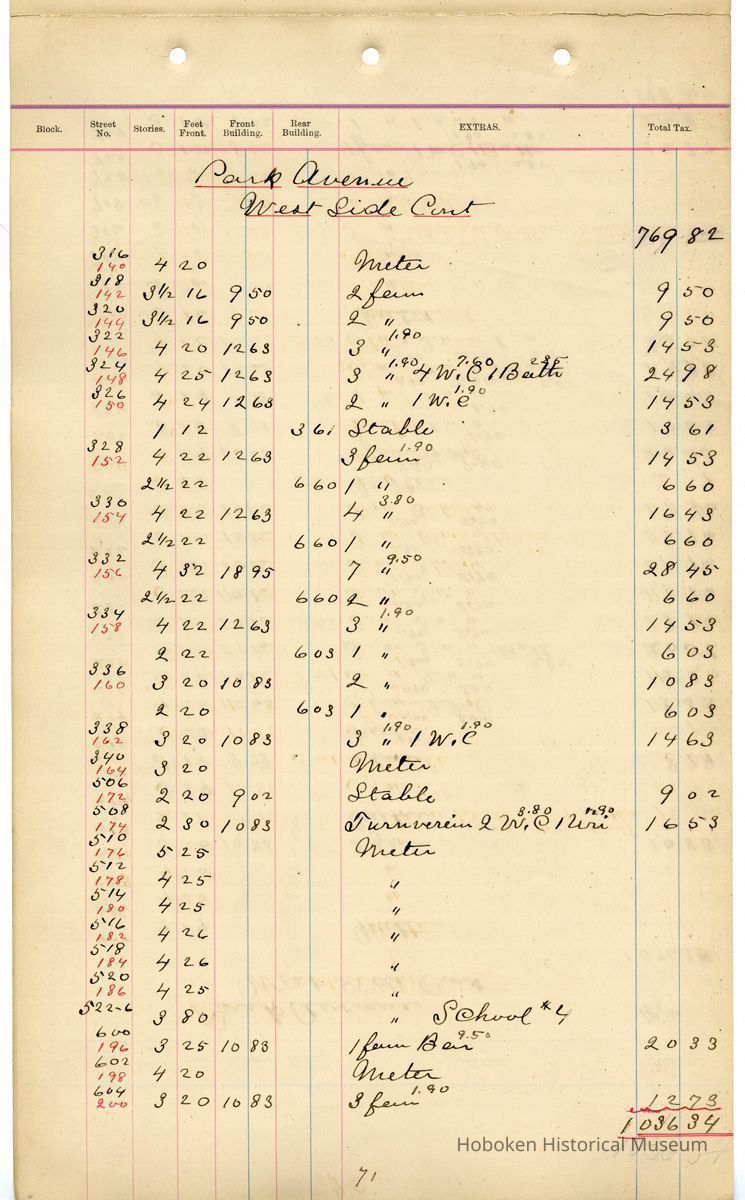 Block. Street No. Stories. Feet Front. Front Building. Rear Building. EXTRAS. Total Tax.
Park Avenue
West Side Cont
769 82
316 140 4 20 Meter
318 142 3 1/2 16 9 50 2 fam 9 50
320 144 3 1/2 16 9 50 2 " 9 50
322 146 4 20 12 63 3 " 1.90 14 53
324 148 4 25 12 63 3 " 1.90 4 W.C 7.60 1 Bath 2.85 24 98
326 150 4 24 12 63 2 " 1 W.C 1.90 14 53
1 12 3 61 Stable 3 61
328 152 4 22 12 63 3 fam 1.90 14 53
2 1/2 22 6 60 1 " 6 60
330 154 4 22 12 63 4 " 3.80 16 43
2 1/2 22 6 60 1 " 6 60
332 156 4 32 18 95 7 " 9.50 28 45
2 1/2 22 6 60 2 " 6 60
334 158 4 22 12 63 3 " 1.90 14 53
2 22 6 03 1 " 6 03
336 160 3 20 10 83 2 " 10 83
2 20 6 03 1 " 6 03
338 162 3 20 10 83 3 " 1.90 1 W.C 1.90 14 63
340 164 3 20 Meter
506 172 2 20 9 02 Stable 9 02
508 174 2 30 10 83 Turnverein 2 W.C 3.80 1 Uri 1.90 16 53
510 176 5 25 Meter
512 178 4 25 "
514 180 4 25 "
516 182 4 26 "
518 184 4 26 "
520 186 4 25 "
522-6 3 80 " School #4
600 196 3 25 10 83 1 fam Bar 9.50 20 33
602 198 4 20 Meter
604 200 3 20 10 83 3 fam 1.90 12 73
1036 34
Hoboken Historical Museum
71